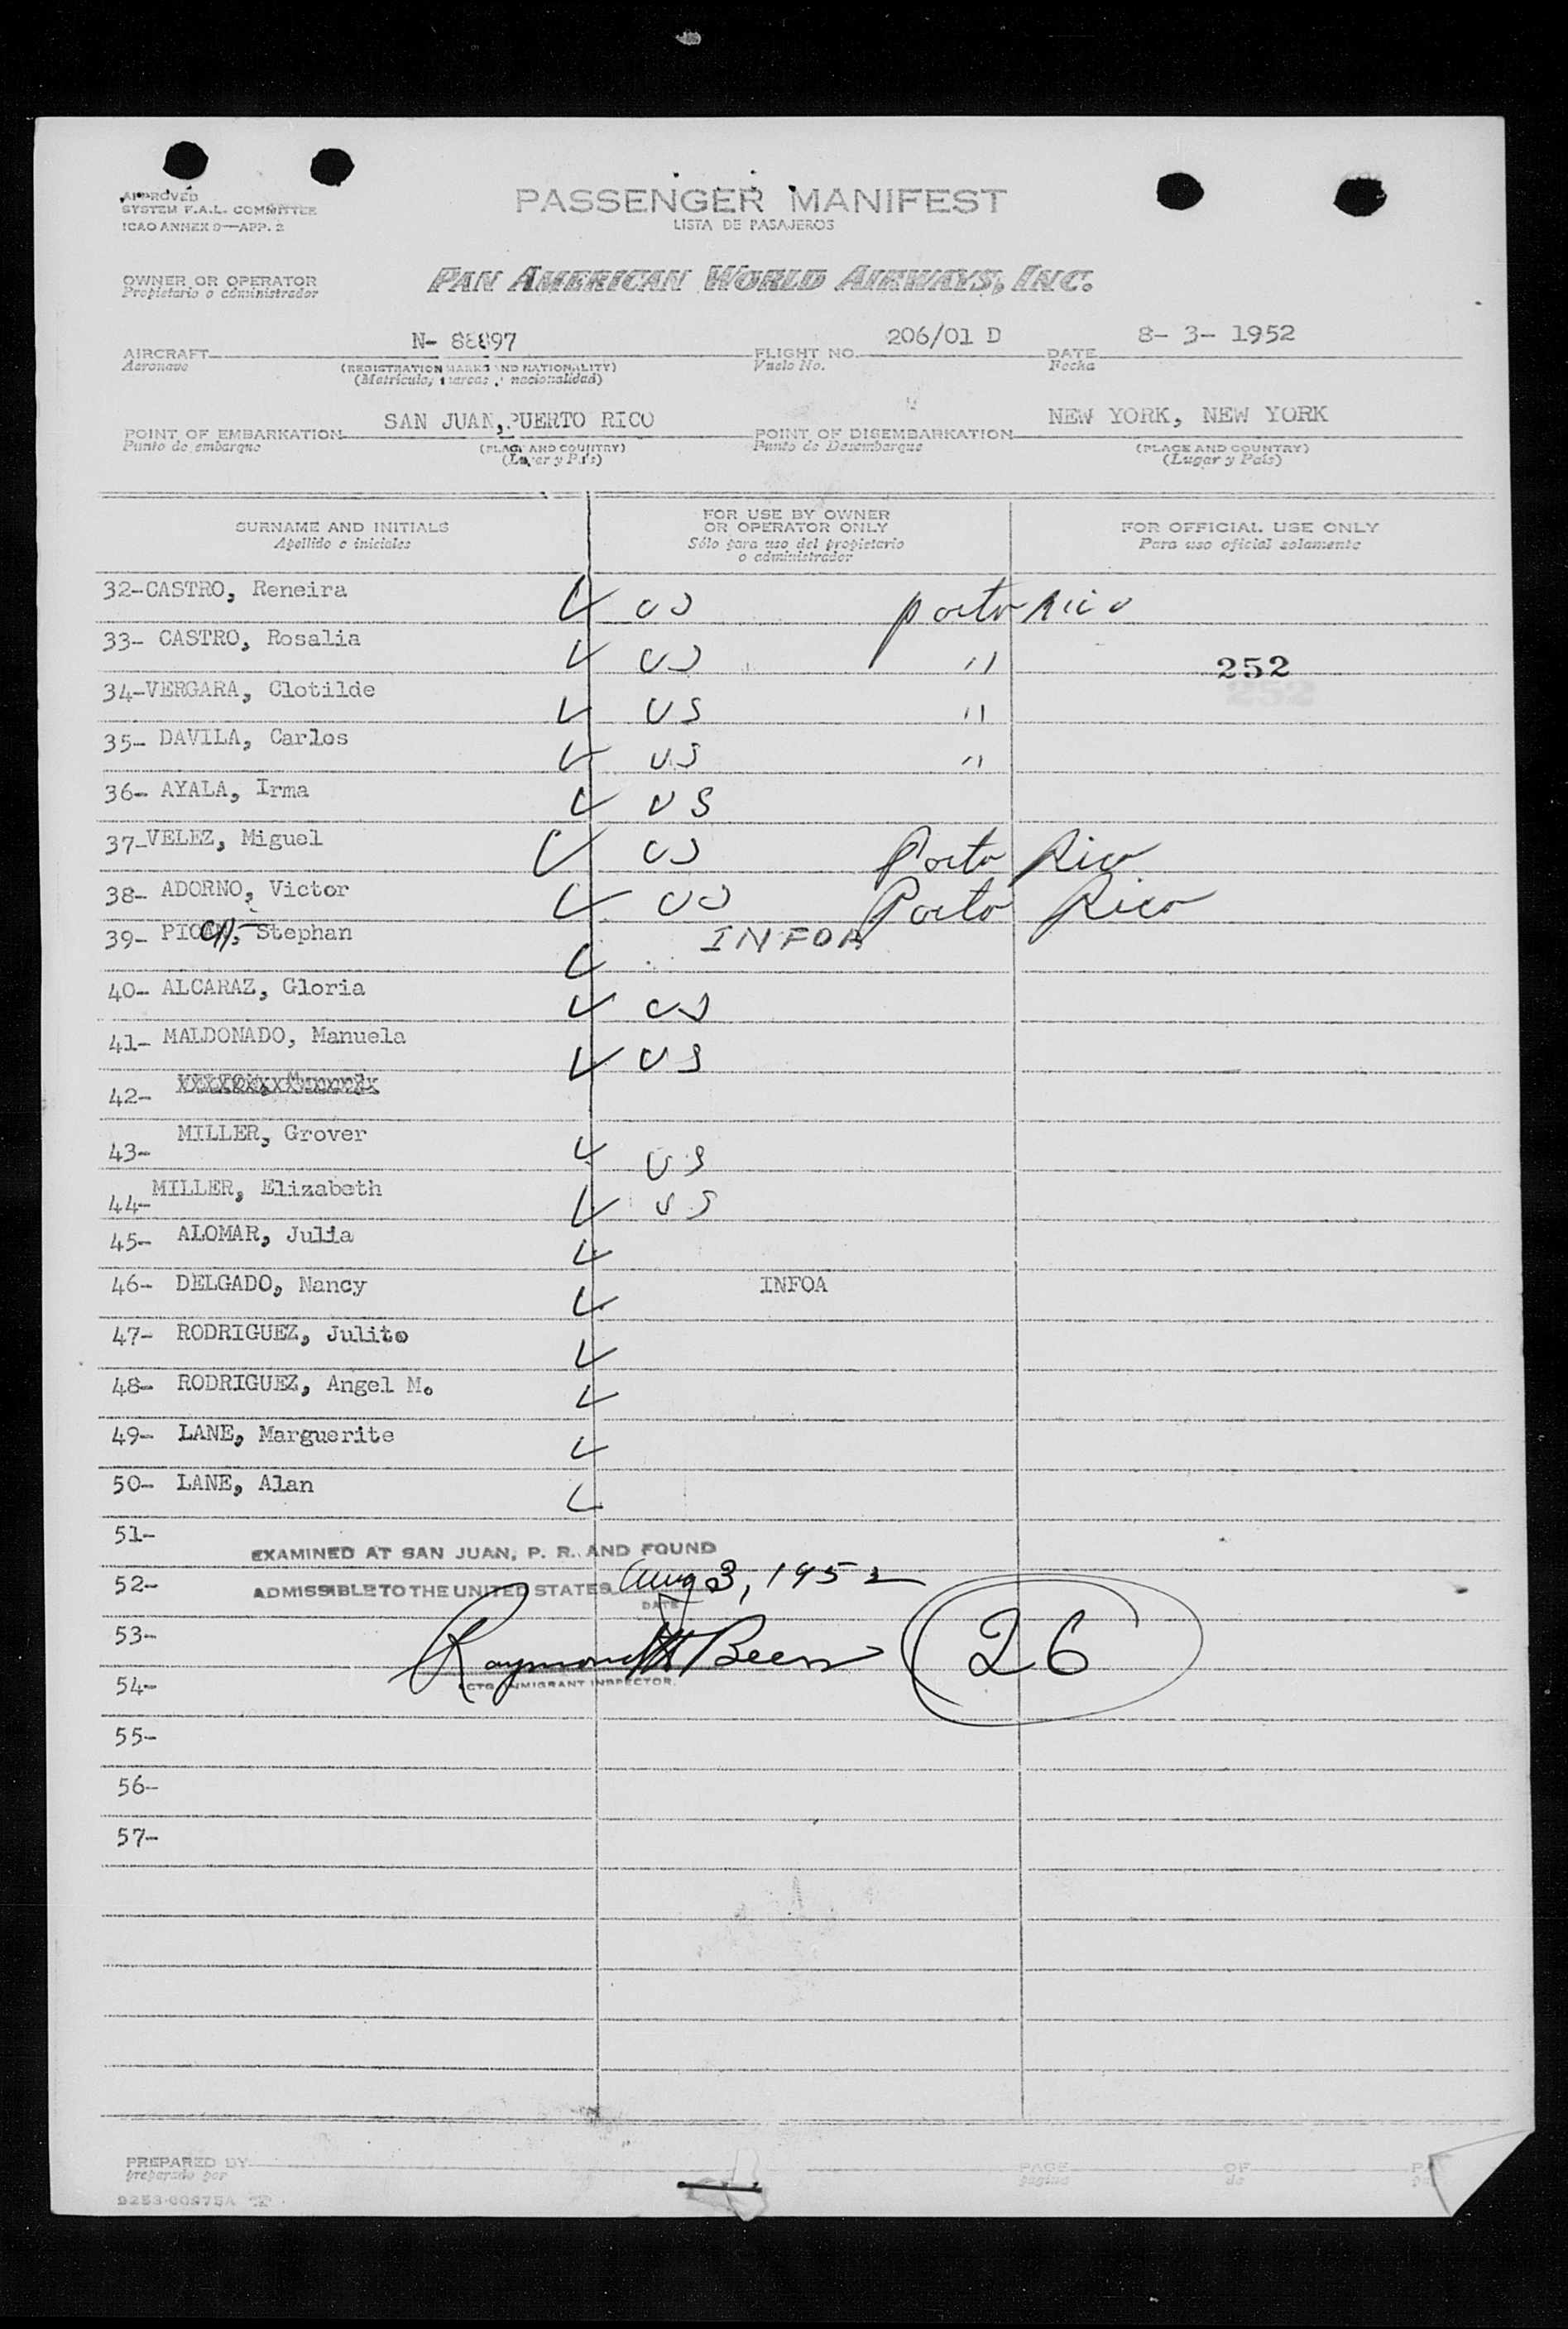 APPROVED
SYSTEM F.A.L. COMMITTEE
ICAO ANNEX 9—APP. 2
PASSENGER MANIFEST
LISTA DE PASAJEROS
OWNER OR OPERATOR
Propietario o administrador
PAN AMERICAN WORLD AIRWAYS, INC.
AIRCRAFT N- 88897
Aeronave
(REGISTRATION MARKS AND NATIONALITY)
(Matricula, marcas y nacionalidad)
FLIGHT NO. 206/01 D
Vuelo No.
DATE 8- 3- 1952
Fecha
POINT OF EMBARKATION SAN JUAN, PUERTO RICO
Punto de embarque
(PLACE AND COUNTRY)
(Lugar y País)
POINT OF DISEMBARKATION NEW YORK, NEW YORK
Punto de Desembarque
(PLACE AND COUNTRY)
(Lugar y País)
SURNAME AND INITIALS
Apellido e iniciales
FOR USE BY OWNER
OR OPERATOR ONLY
Sólo para uso del propietario
o administrador
FOR OFFICIAL USE ONLY
Para uso oficial solamente
32-CASTRO, Reneira US Porto Rico
33- CASTRO, Rosalia US " 252
34-VERGARA, Clotilde US "
35- DAVILA, Carlos US "
36- AYALA, Irma US
37-VELEZ, Miguel US Porto Rico
38- ADORNO, Victor US Porto Rico
39- Stephan INFOA
40- ALCARAZ, Gloria US
41- MALDONADO, Manuela US
42-
43- MILLER, Grover US
44- MILLER, Elizabeth US
45- ALOMAR, Julia
46- DELGADO, Nancy INFOA
47- RODRIGUEZ, Julito
48- RODRIGUEZ, Angel M.
49- LANE, Marguerite
50- LANE, Alan
51-
EXAMINED AT SAN JUAN, P. R. AND FOUND
52- ADMISSIBLE TO THE UNITED STATES Aug 3, 1952
DATE
53- Raymond Beers 26
54- ACTG. IMMIGRANT INSPECTOR.
55-
56-
57-
PREPARED BY
preparado por
PAGE OF
pagina de